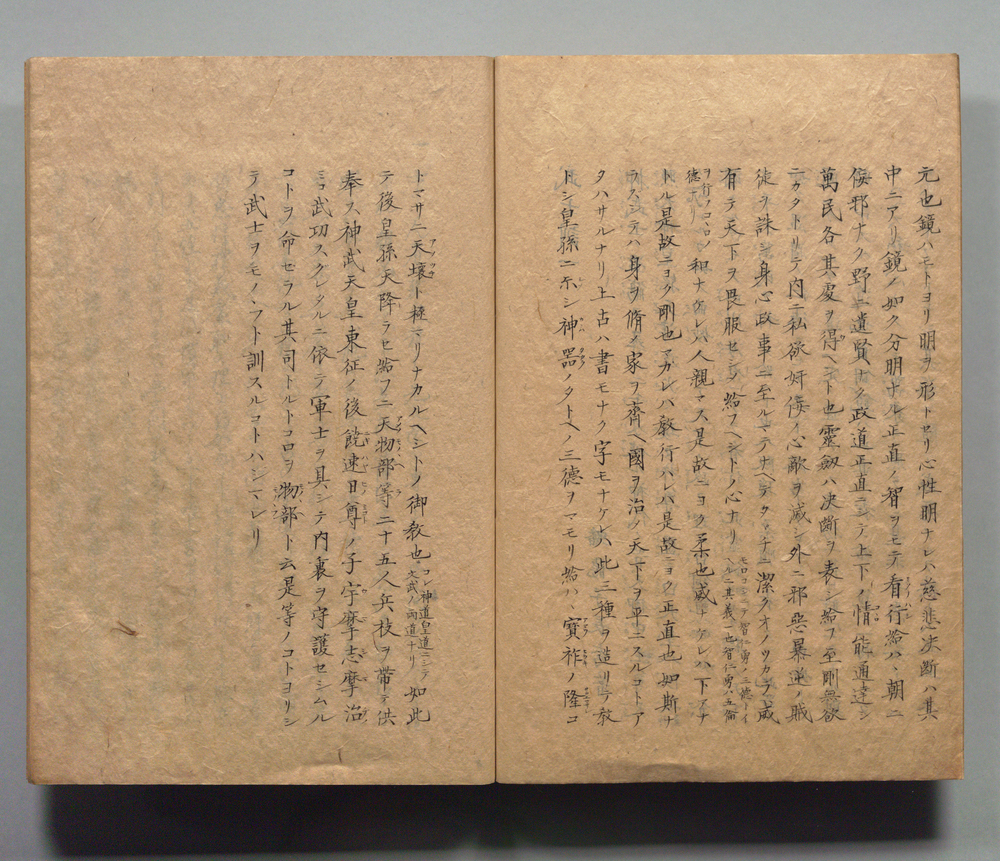 元也鏡ハモトヨリ明ヲ形トセリ心性明ナレハ慈悲決断ハ其
中ニアリ鏡ノ如ク分明ナル正直ノ智ヲモテ看行給ハヽ朝ニ
佞邪ナク野ニ遺賢ナク政道正直ニシテ上下ノ情能通達シ
萬民各其處ヲ得ヘシト也靈劔ハ決断ヲ表シ給フ至剛無欲
ニカタトリテ内ニ私欲奸佞ノ心敵ヲ滅シ外ニ邪惡暴逆ノ賊
徒ヲ誅シ身心政事ニ至ルマテナヘテタマチニ潔クオノツカラ威
有テ天下ヲ畏服セシメ給フヘシトノ心ナリ モロコシニテ智仁勇ノ三徳トイヘルニ其義一也智仁勇ハ五倫
ヲ行フコヽロノ徳ナリ 和ナケレハ人親マス是故ニヨク柔也威ナケレハ下アナ
トル是故ニヨク剛也マカレハ教行ハレス是故ニヨク正直也如斯ナ
ラスシテハ身ヲ脩メ家ヲ齊ヘ國ヲ治メ天下ヲ平ニスルコトア
タハサルナリ上古ハ書モナク字モナケレハ此三種ヲ造リテ教
トシ皇孫ニ示シ神器ノタトヘノ三徳ヲマモリ給ハヽ寳祚ノ隆コ
トマサニ天壌ト極マリナカルヘシトノ御教也 コレ神道皇道ニシテ文武ノ両道ナリ 如此
テ後皇孫天降ラセ給フニ天物部等二十五人兵杖ヲ帯テ供
奉ス神武天皇東征ノ後饒速日尊ノ子宇摩志摩治
ミコ武功スクレタルニ依テ軍士ヲ具シテ内裏ヲ守護セシムル
コトヲ命セラル其司トルトコロヲ物部ト云是等ノコトヨリシ
テ武士ヲモノヽフト訓スルコトハシマレリ